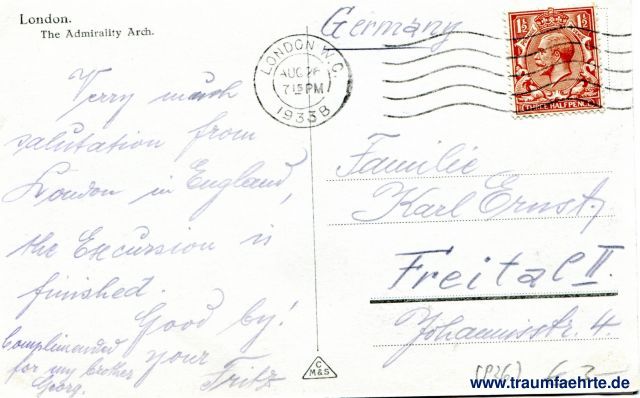 London.
The Admirality Arch.
Germany
LONDON W.C.
AUG 26
7 15 PM
1933 B
1½ 1½
THREE HALFPENCE
Verry much
salutation from
London in England,
the Excursion is
finished.
Good by!
your
Fritz
Complimented
for my brother
Georg.
Familie
Karl Ernst,
Freital II.
Johannisstr. 4
C
M&S
www.traumfaehrte.de